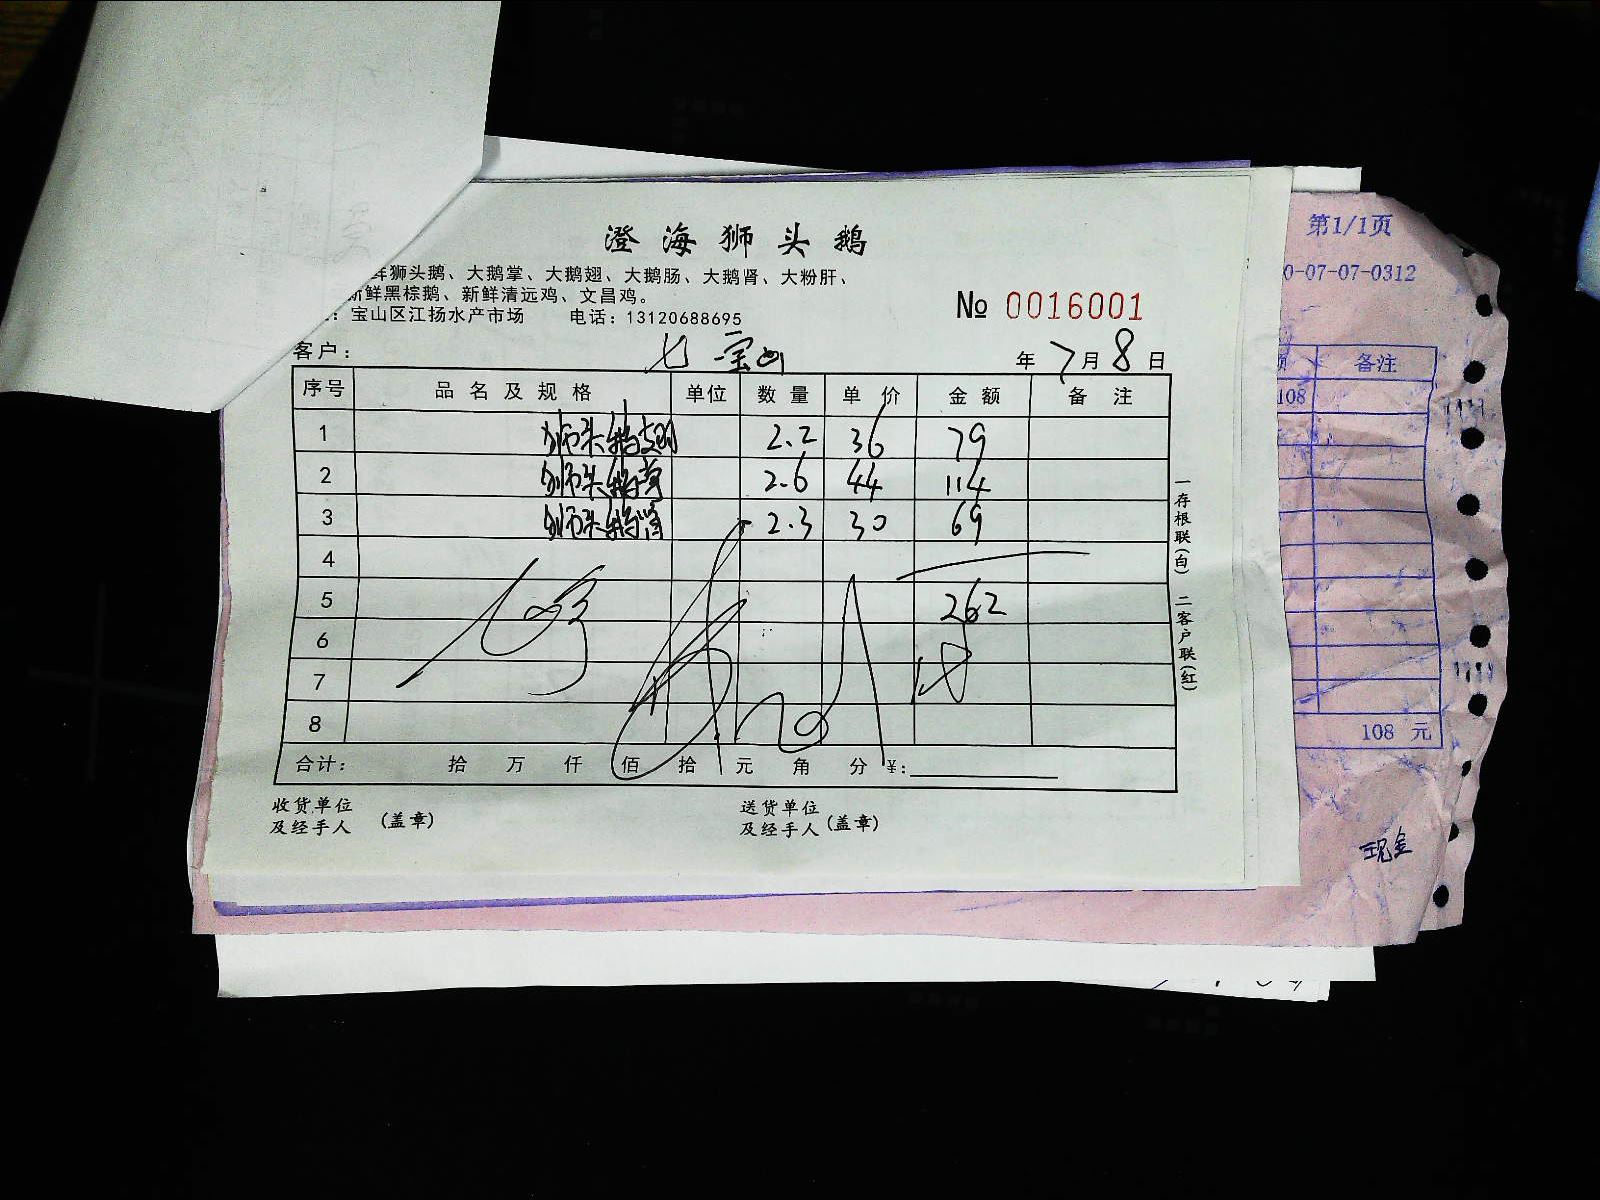 澄海狮头鹅
鲜狮头鹅、大鹅掌、大鹅翅、大鹅肠、大鹅肾、大粉肝、
新鲜黑棕鹅、新鲜清远鸡、文昌鸡。
：宝山区江扬水产市场 电话：13120688695
№ 0016001
客户： 七宝 年 7 月 8 日
序号 品名及规格 单位 数量 单价 金额 备注
1 狮头鹅翅 2.2 36 79
2 狮头鹅掌 2.6 44 114
3 狮头鹅肾 2.3 30 69
4
5 262
6
7
8
合计： 拾 万 仟 佰 拾 元 角 分 ¥:
收货单位及经手人 (盖章) 送货单位及经手人 (盖章)
一存根联(白) 二客户联(红)
第1/1页
0-07-07-0312
备注
108
108 元
现金